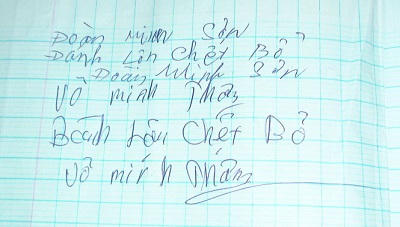 Đoàn minh Sơn
Đánh Lộn Chết Bỏ
Đoàn Minh Sơn
Võ minh Thân
Đánh Lộn Chết Bỏ
Võ minh Thân